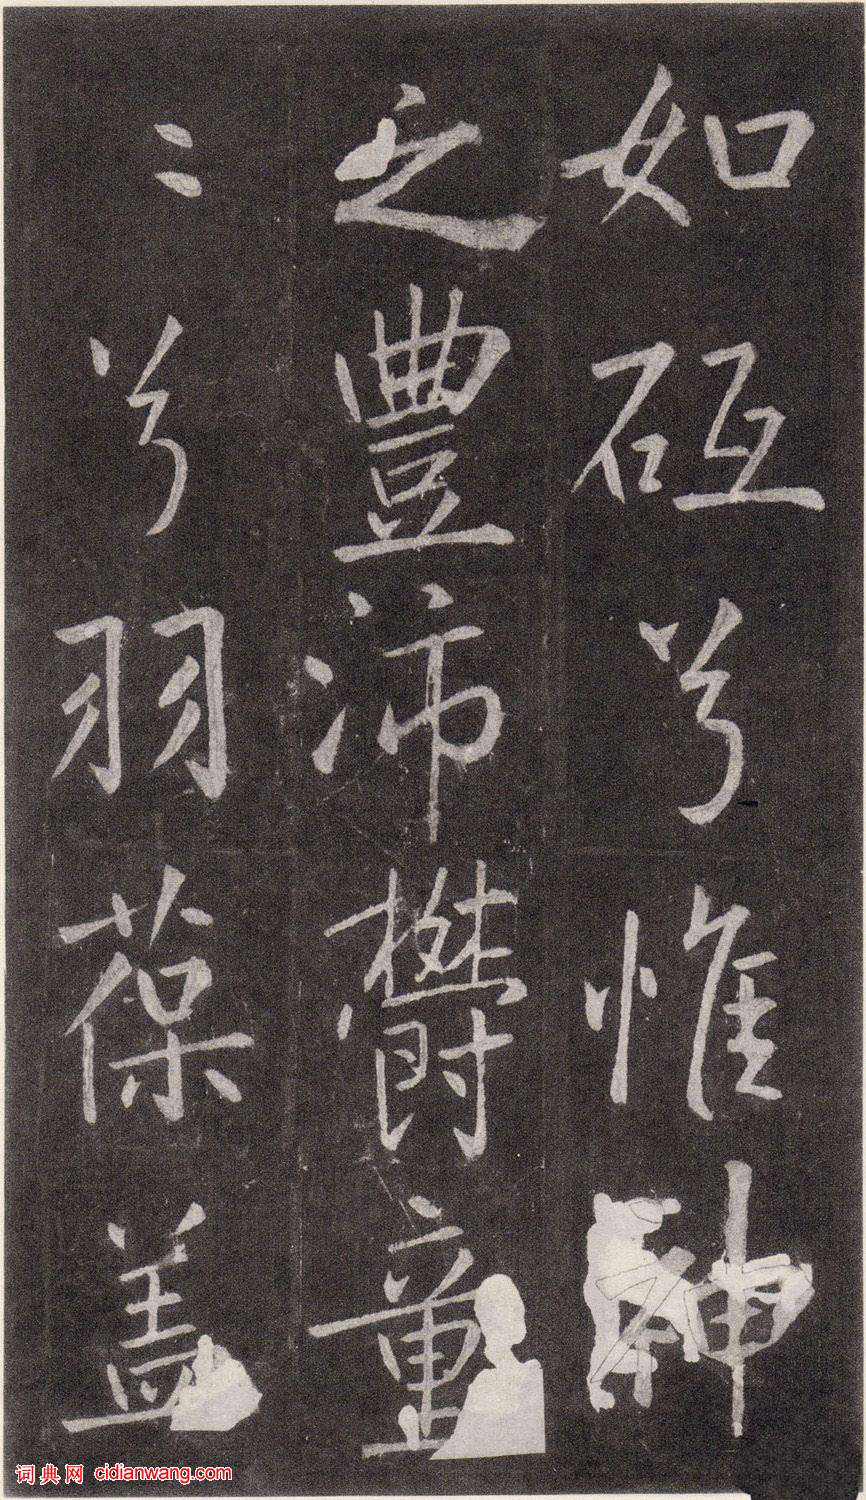 如砥兮惟神
之豐沛欝童
〻兮羽葆盖
词典网 cidianwang.com